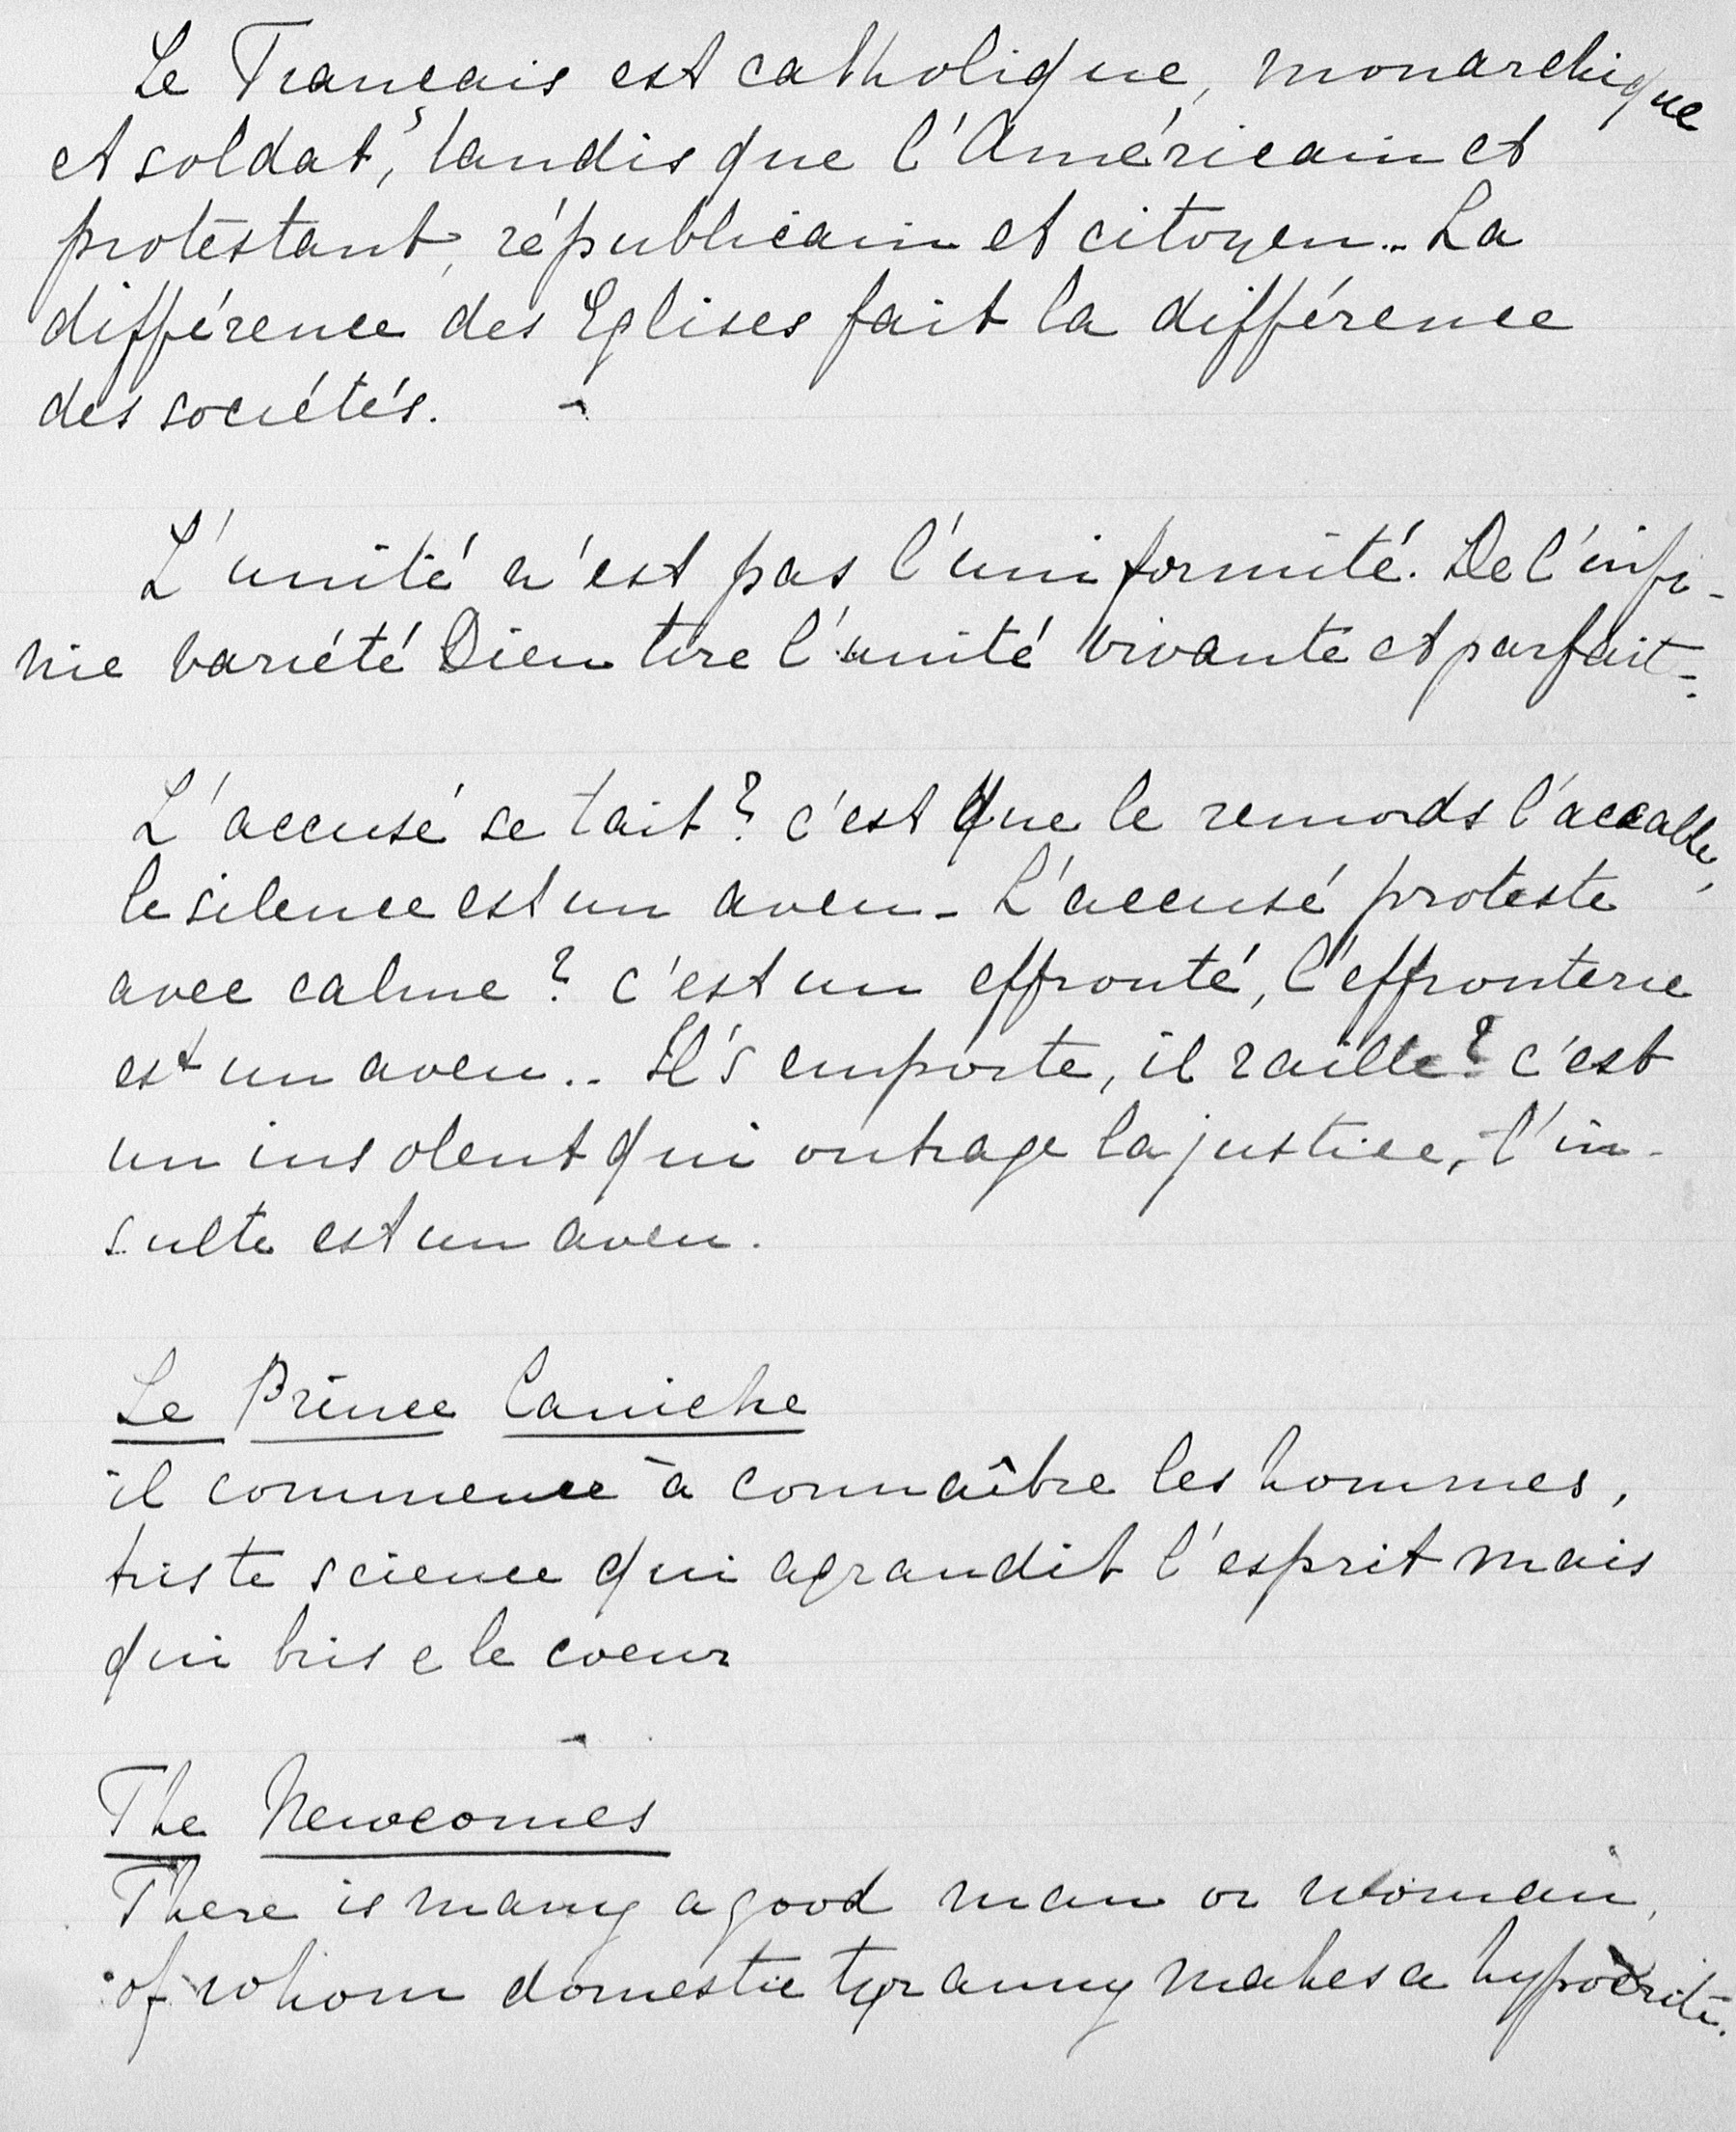 Le Français est catholique, monarchique
et soldat, tandis que l'Américain est
protestant, républicain et citoyen.. La
différence des Eglises fait la différence
des sociétés.
L'unité n'est pas l'uniformité. De l'infi-
nie variété Dieu tire l'unité vivante et parfait-
L'accusé se tait ? c'est que le remords l'accable,
le silence est un aveu - L'accusé proteste
avec calme ? c'est un effronté, l'effronterie
est un aveu .. Il s'emporte, il raille ? c'est
un insolent qui outrage la justice, l'in-
sulte est un aveu.
Le Prince Caniche
il commence à connaître les hommes,
triste science qui agrandit l'esprit mais
qui brise le coeur
The Newcomes
There is many a good man or woman,
of whom domestic tyranny makes a hypocrite.